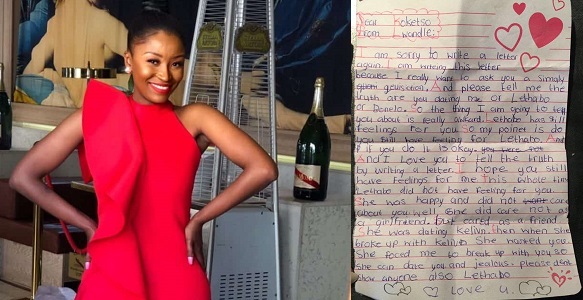 Dear Koketso
From Wandle:
I am sorry to write a letter
again. I am writing this letter
because I really want to ask you a simply
question. And please tell me the
truth are you dating me or Lethabo
or Danelo. So the thing I am going to tell
you about is really awkard. Lethabo has still
feelings for you So my poinet is do
you still have feeling for Lethabo. And
if you do it is okay.
And I Love you to tell the truth
by writing a letter. I hope you still
have feelings for me This whole time
Lethabo did not have feeling for you
She was happy and did not care
about you well She did care not as
a girlfriend but cared as a friend
She was dating Kelivn then when she
broke up with Kelivn She wanted you.
She foced me to break up with you so
she can date you and jealous. please dont
show anyone also Lethabo
I Love u.